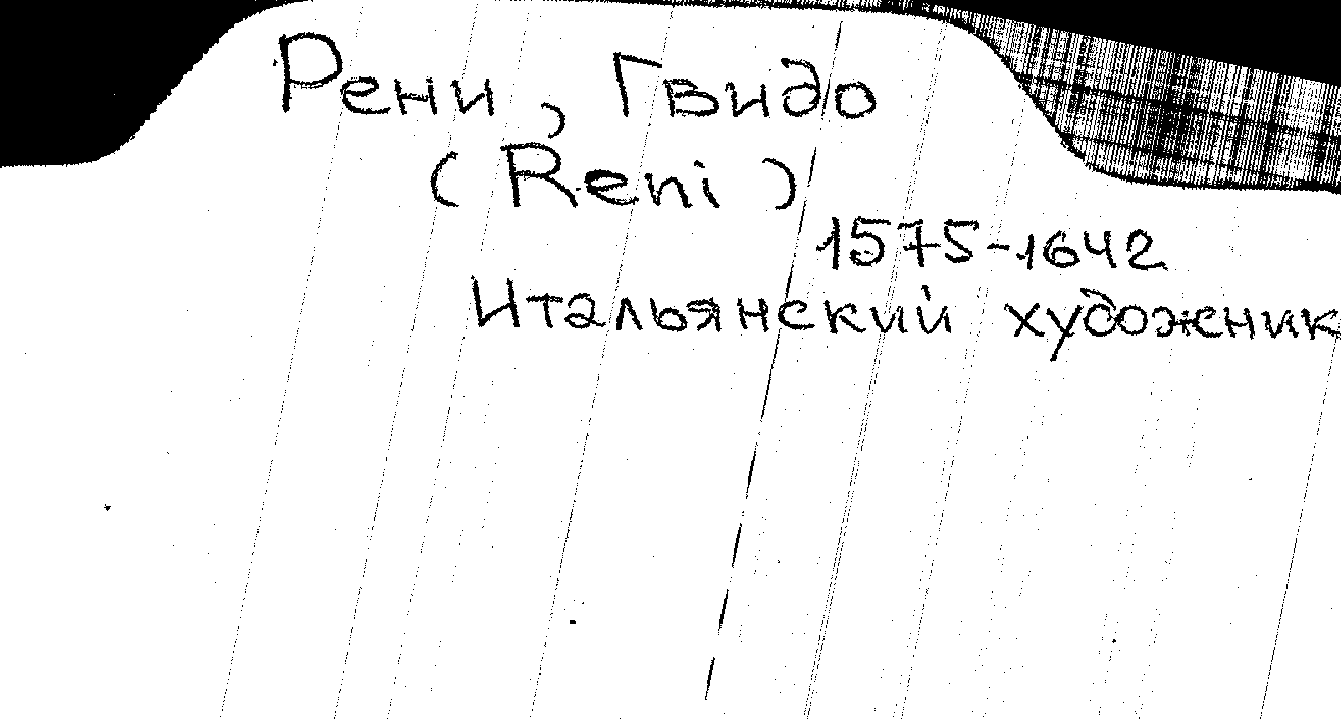 Рени, Гвидо
(Reni)
1575-1642
Итальянский художник